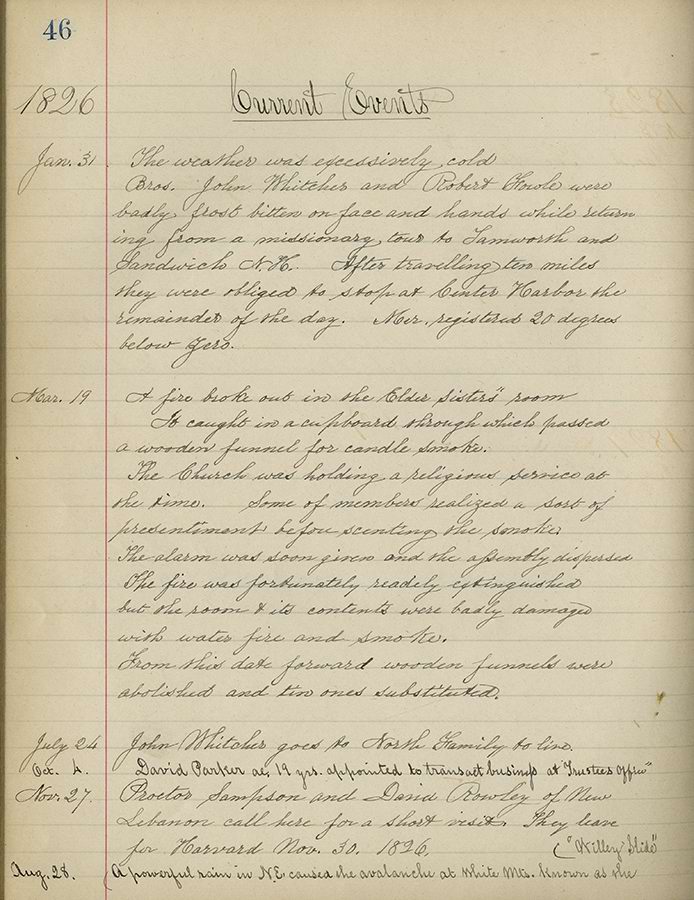 46
1826 Current Events
Jan. 31. The weather was excessively cold
Bros. John Whitcher and Robert Fowle were
badly frost bitten on face and hands while return
ing from a missionary tour to Tamworth and
Sandwich N.H. After travelling ten miles
they were obliged to stop at Center Harbor the
remainder of the day. Mer. registered 20 degrees
below Zero.
Mar. 19 A fire broke out in the Elder Sisters" room
It caught in a cupboard through which passed
a wooden funnel for candle smoke.
The Church was holding a religious service at
the time. Some of members realized a sort of
presentiment before scenting the smoke
The alarm was soon given and the assembly dispersed
The fire was fortunately readely extinguished
but the room & its contents were badly damaged
with water fire and smoke.
From this date forward wooden funnels were
abolished and tin ones substituted.
July 24 John Whitcher goes to North Family to live.
Oct. 4. David Parker ae, 19 yrs. appointed to transact business at Trustees Office"
Nov. 27. Proctor Sampson and David Rowley of New
Lebanon call here for a short visit. They leave
for Harvard Nov. 30. 1826. ("Willey Slide"
Aug. 28. (A powerful rain in N.E caused the avalanche at White Mts. known as the